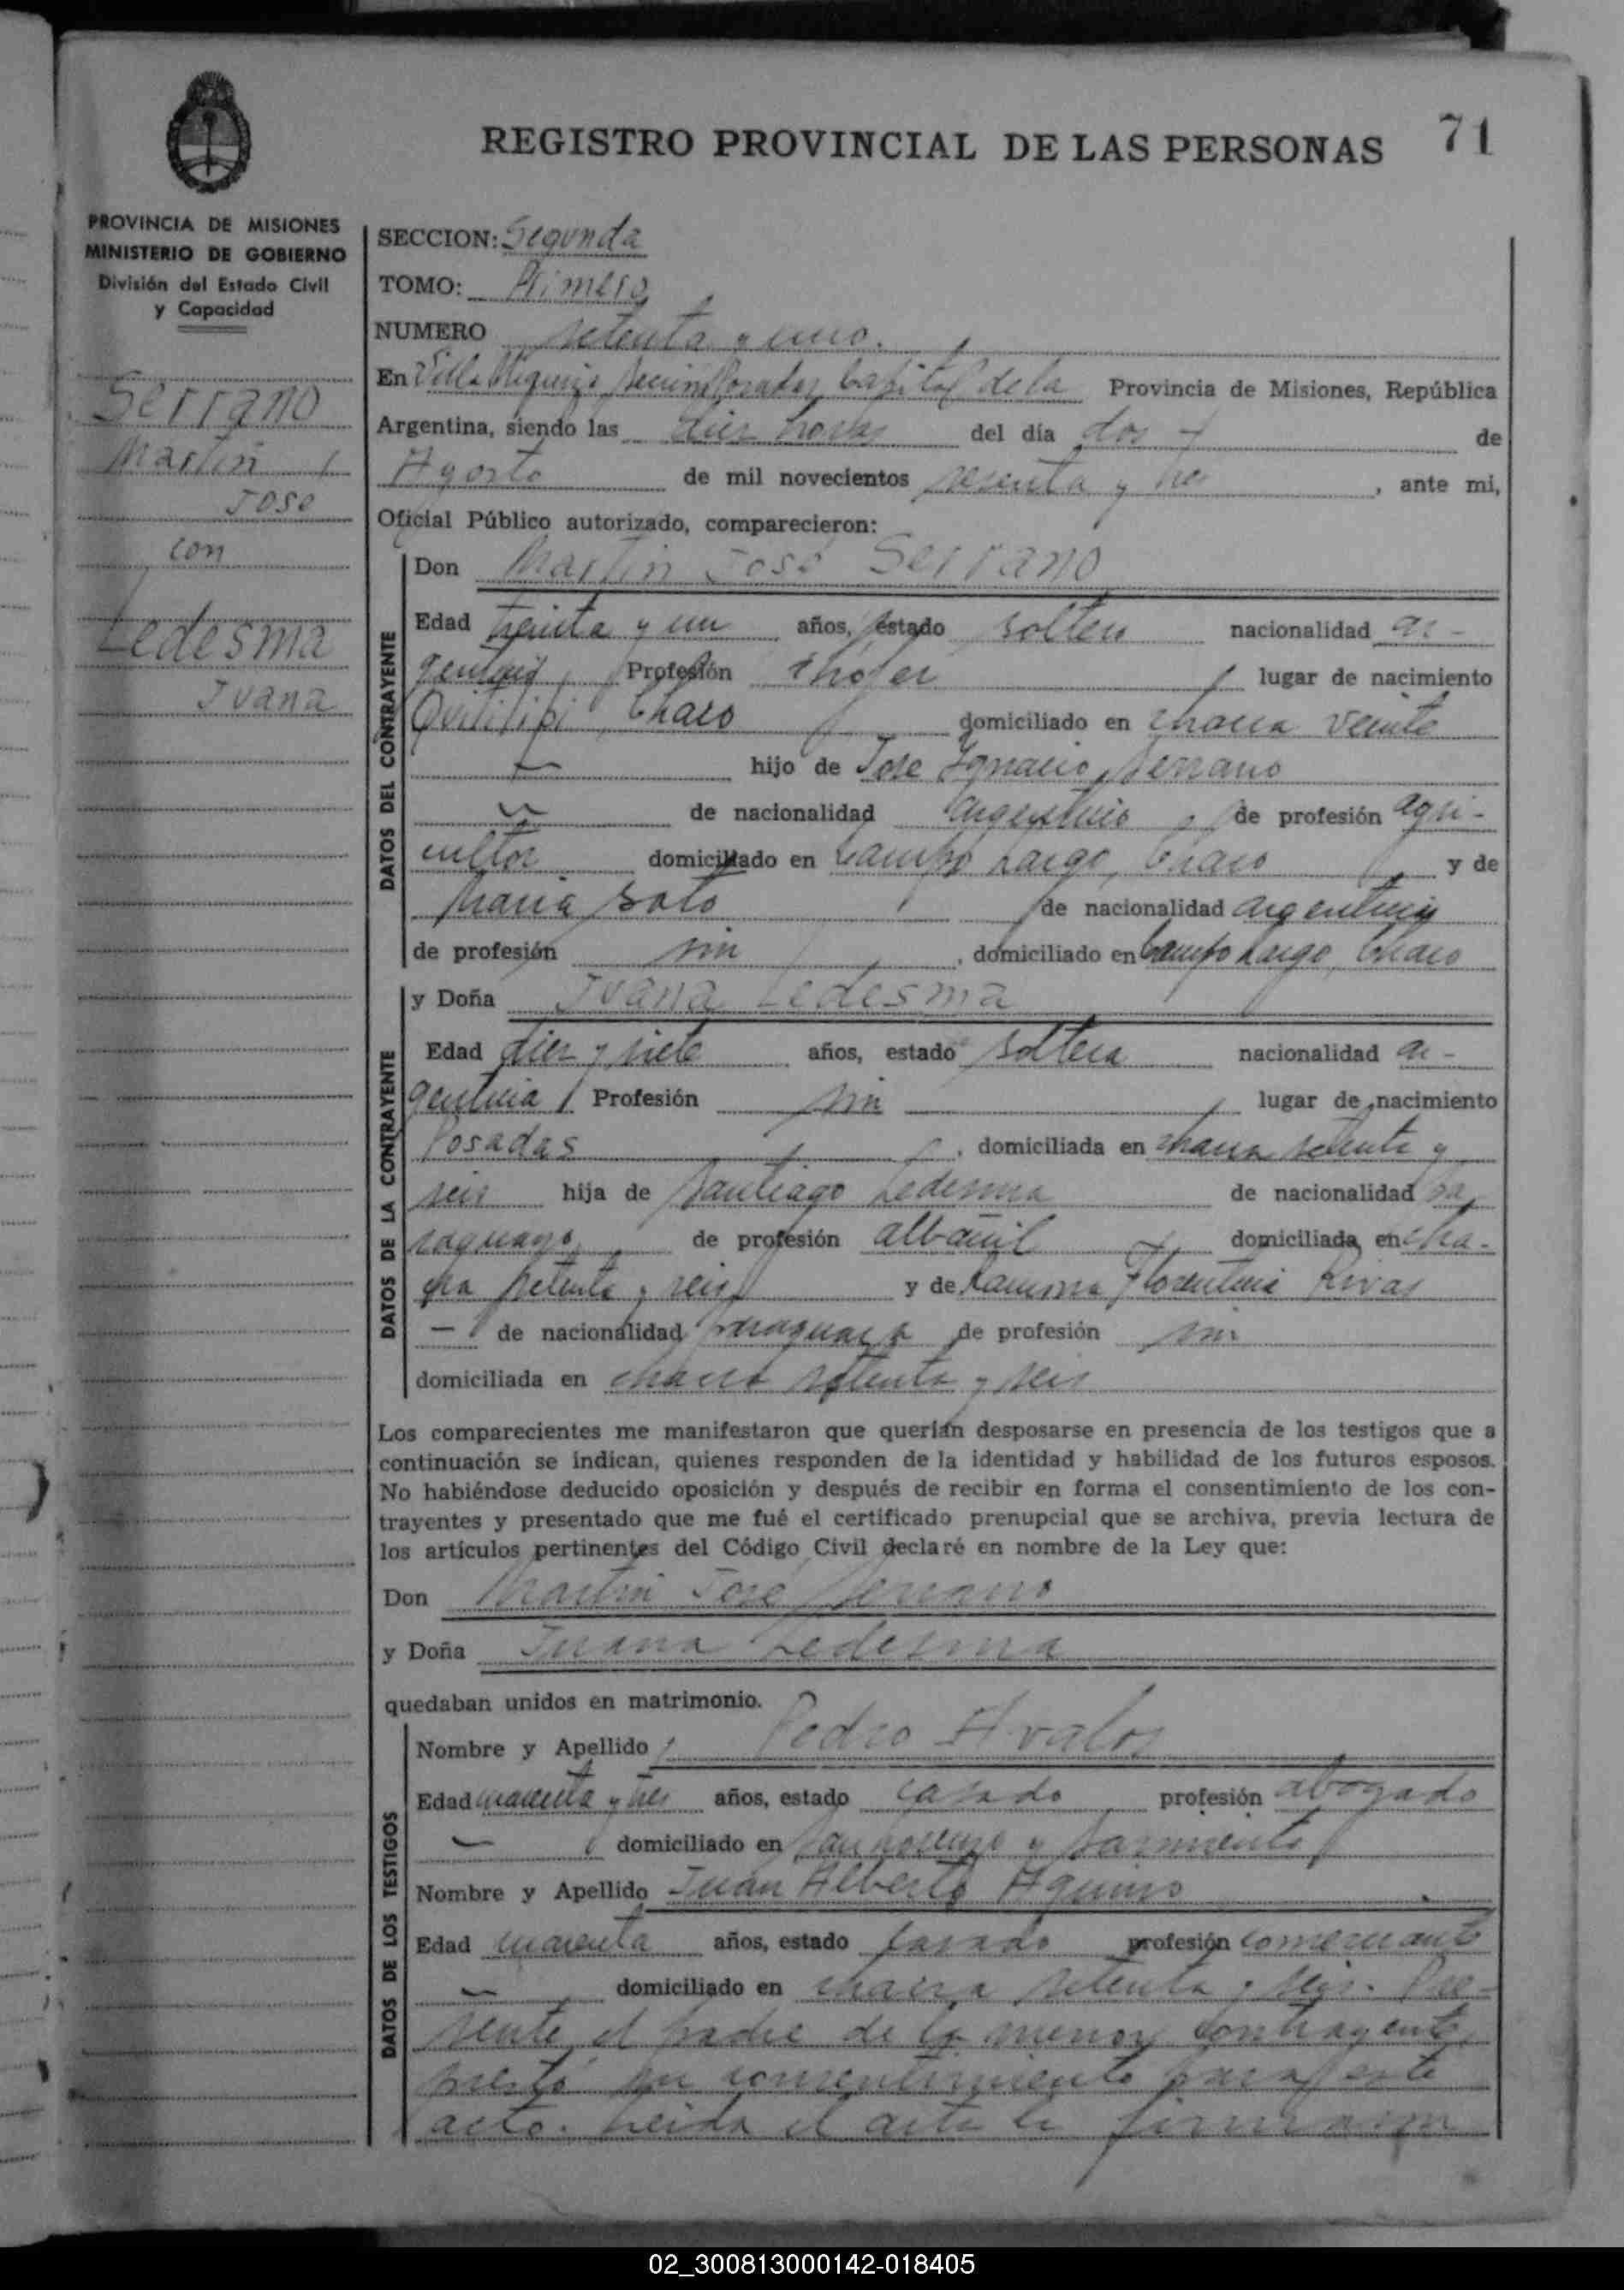 REGISTRO PROVINCIAL DE LAS PERSONAS 71
PROVINCIA DE MISIONES
MINISTERIO DE GOBIERNO
División del Estado Civil
y Capacidad
Serrano
Martin
Jose
con
Ledesma
Juana
SECCION: Segunda
TOMO: Primero
NUMERO setenta y uno.
En Villa Urquiza Posadas Capital de la Provincia de Misiones, República
Argentina, siendo las diez horas del día dos de
Agosto de mil novecientos sesenta y tres, ante mi,
Oficial Público autorizado, comparecieron:
DATOS DEL CONTRAYENTE
Don Martin José Serrano
Edad treinta y un años, estado soltero nacionalidad ar-
gentino Profesión chofer lugar de nacimiento
Quitilipi, Chaco domiciliado en chacra veinte
hijo de Jose Ignacio Serrano
de nacionalidad argentino, de profesión agri-
cultor domiciliado en Campo Largo, Chaco y de
Maria Soto de nacionalidad argentina
de profesión sin, domiciliado en Campo Largo, Chaco
DATOS DE LA CONTRAYENTE
y Doña Juana Ledesma
Edad diez y siete años, estado soltera nacionalidad ar-
gentina Profesión sin lugar de nacimiento
Posadas, domiciliada en chacra setenta y
seis hija de Santiago Ledesma de nacionalidad pa
raguayo de profesión albañil domiciliada en cha-
cra setenta y seis y de Florentina Rivas
de nacionalidad paraguaya de profesión sin
domiciliada en chacra setenta y seis
Los comparecientes me manifestaron que querían desposarse en presencia de los testigos que a
continuación se indican, quienes responden de la identidad y habilidad de los futuros esposos.
No habiéndose deducido oposición y después de recibir en forma el consentimiento de los con-
trayentes y presentado que me fué el certificado prenupcial que se archiva, previa lectura de
los artículos pertinentes del Código Civil declaré en nombre de la Ley que:
Don Martin José Serrano
y Doña Juana Ledesma
quedaban unidos en matrimonio.
DATOS DE LOS TESTIGOS
Nombre y Apellido Pedro Avalos
Edad cuarenta y tres años, estado casado profesión abogado
domiciliado en San Lorenzo y Sarmiento
Nombre y Apellido Juan Alberto Aquino
Edad cuarenta años, estado casado profesión comerciante
domiciliado en chacra setenta y seis. Pre-
sente el padre de la menor contrayente
prestó su consentimiento para este
acto. Leida el acta la firmaron
02_300813000142-018405